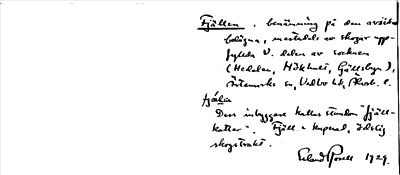 Fjällen, benämning på den avsides
belägna, mestadels av skogar upp-
fyllda V. delen av socknen
(Hedalen, Höklult, Gällsbyn),
Ärtemarks sn, Vedbo hd,
fjäla
Dess inbyggare kallas stundom "fjäll-
katter". Fjäll = kuperad, ödslig
skogstrakt.
Erland 1929.